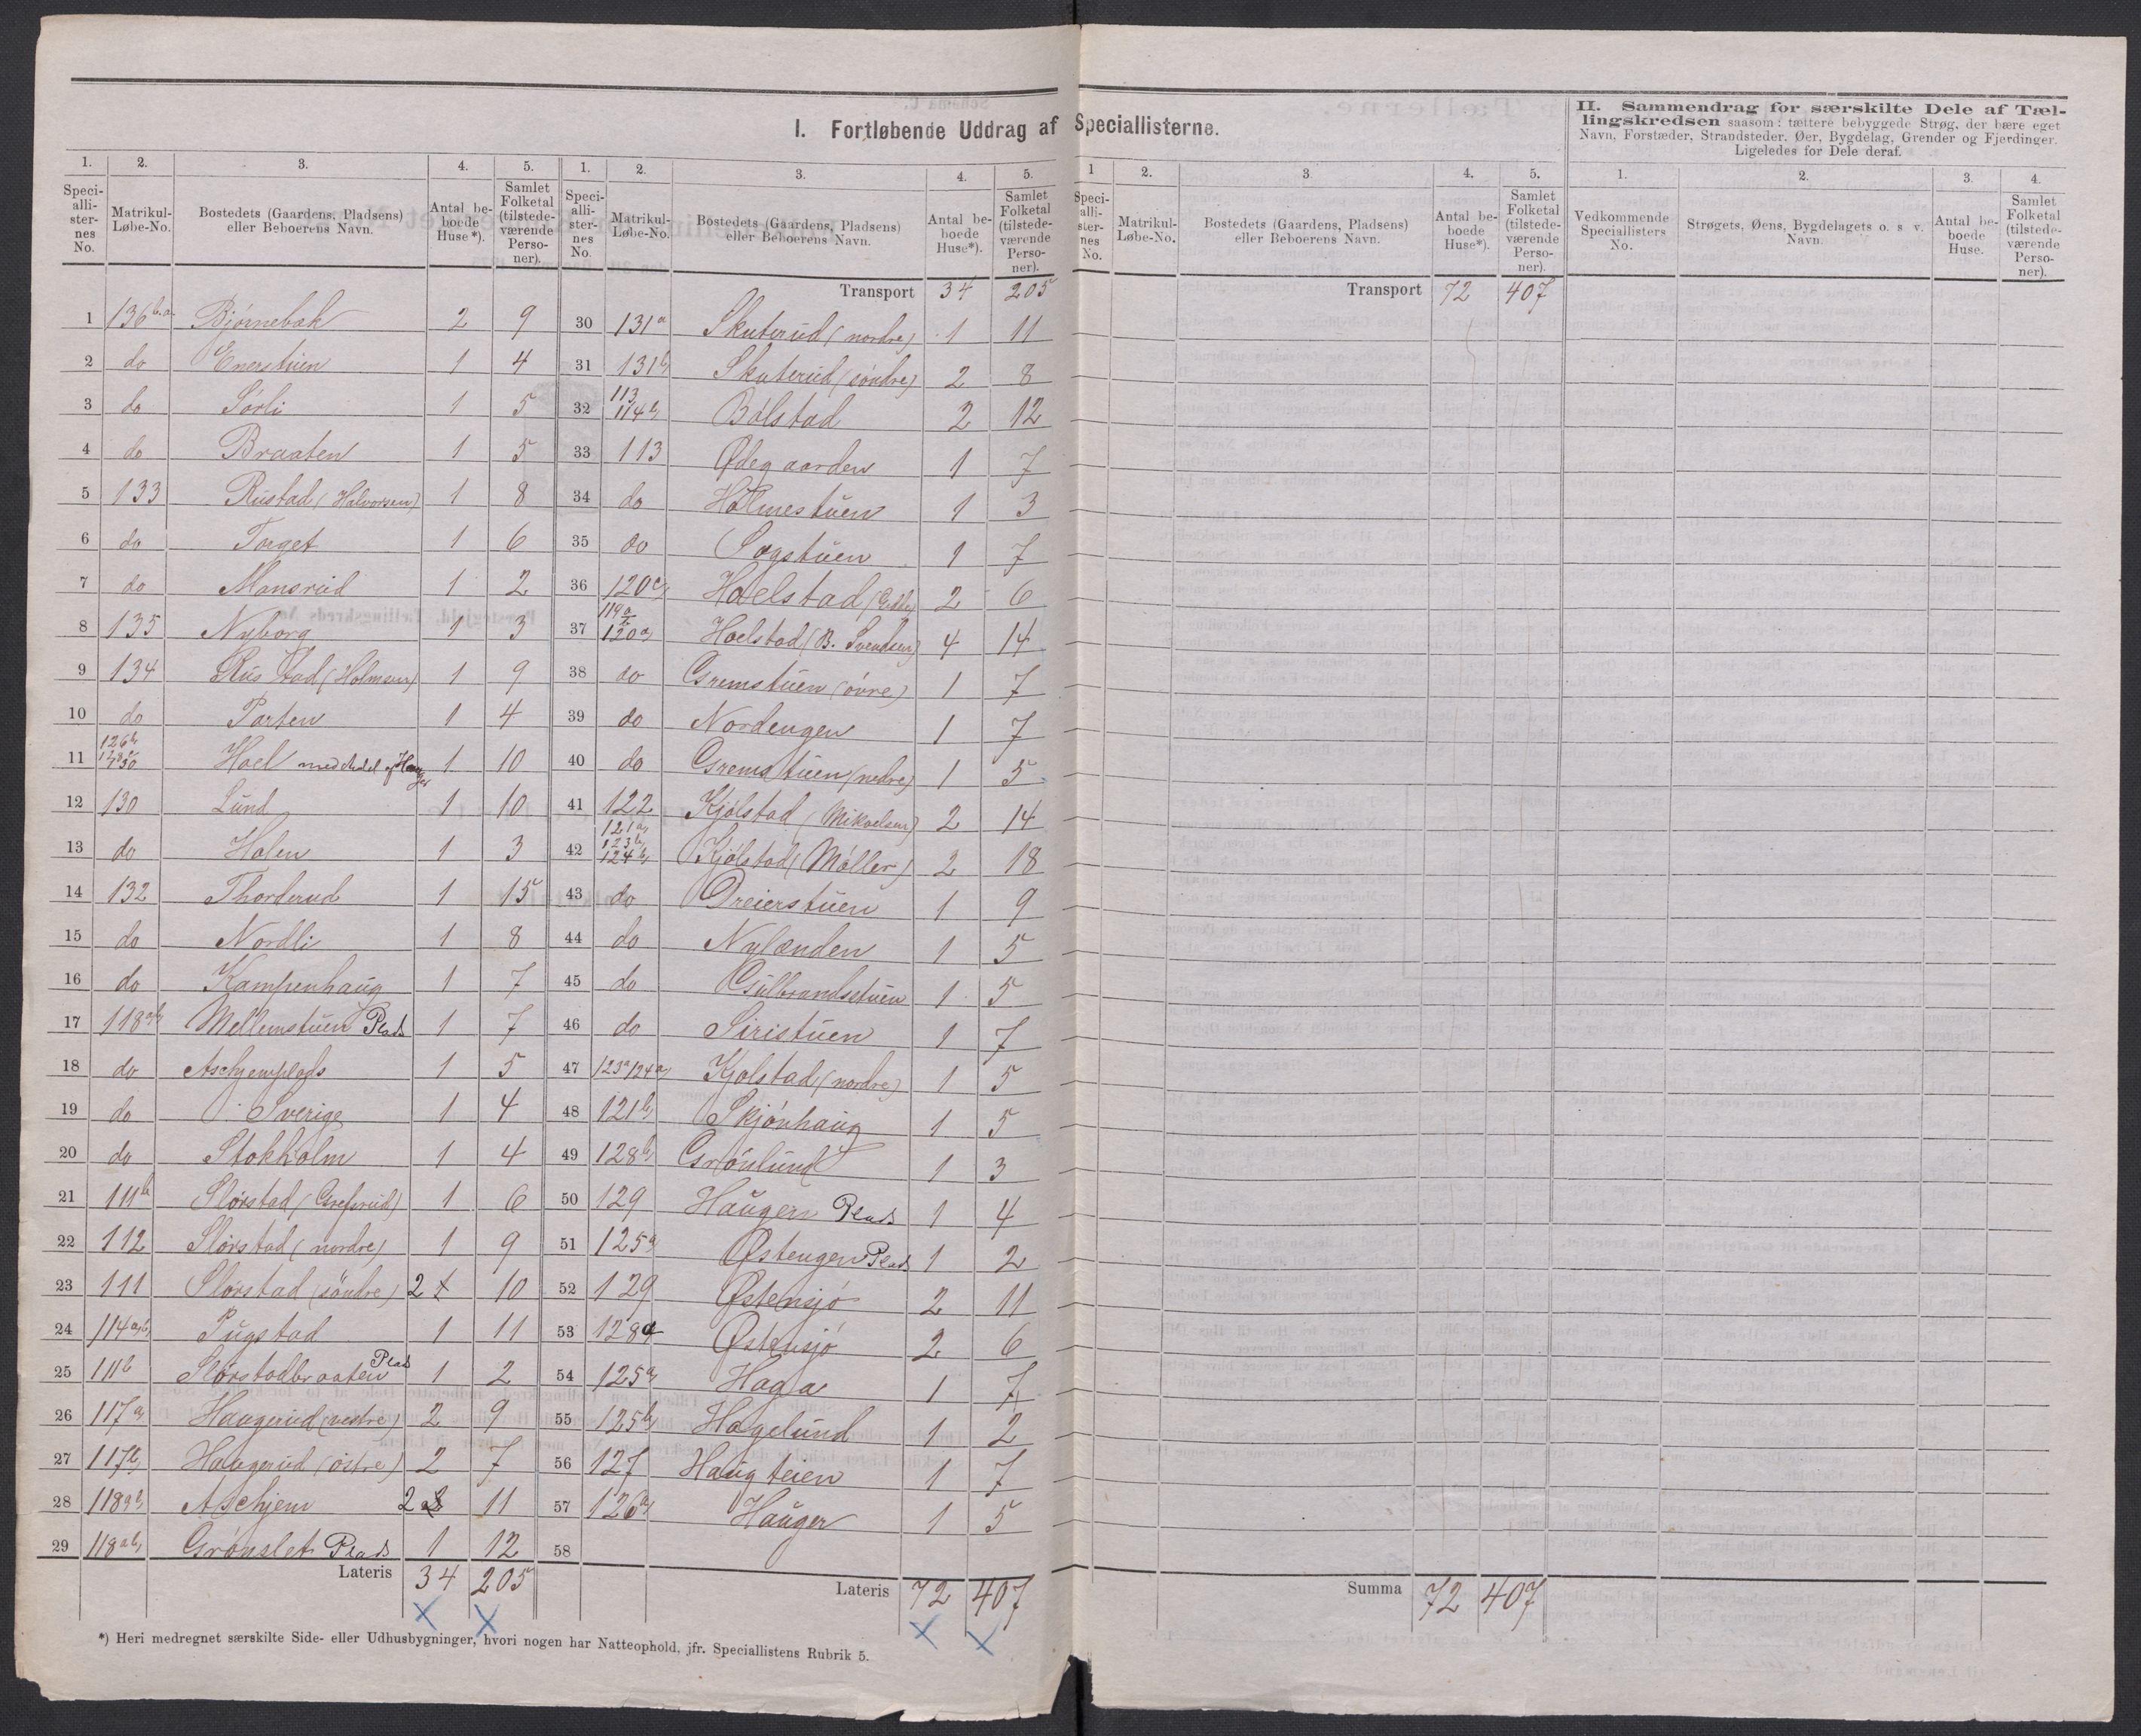 I. Fortløbende Uddrag af Speciallisterne.
1. 2. 3. 4. 5.
Speciallisternes No. Matrikul-Løbe-No. Bostedets (Gaardens, Pladsens) eller Beboerens Navn. Antal beboede Huse*). Samlet Folketal (tilstedeværende Personer).
1 136 b.a. Bjørnebæk 2 9
2 do Enerstuen 1 4
3 do Sørli 1 5
4 do Braaten 1 5
5 133 Rustad (Halvorsen) 1 8
6 do Torget 1 6
7 do Mansrud 1 2
8 135 Nyborg 1 3
9 134 Rustad (Holmsen) 1 9
10 do Parten 1 4
11 126b Hoel med Andel af Hauger 1 10
12 130 Lund 1 10
13 do Holen 1 3
14 132 Thorderud 1 15
15 do Nordli 1 8
16 do Kampenhaug 1 7
17 118ab Mellemstuen Plads 1 7
18 do Aschjemplads 1 5
19 do Sverige 1 4
20 do Stokholm 1 4
21 111b Slorstad (Grefsrud) 1 6
22 112 Slorstad (nordre) 1 9
23 111 Slorstad (søndre) 2 10
24 114a,b, Pugstad 1 11
25 111b Slorstadbraaten Plads 1 2
26 117a, Haugerud (vestre) 2 9
27 117b, Haugerud (østre) 2 7
28 118ab Aschjem 2 11
29 118ab, Grønslet Plads 1 12
Lateris 34 205
1. 2. 3. 4. 5.
Speciallisternes No. Matrikul-Løbe-No. Bostedets (Gaardens, Pladsens) eller Beboerens Navn. Antal beboede Huse*). Samlet Folketal (tilstedeværende Personer).
Transport 34 205
30 131a Skuterud (nordre) 1 11
31 131b, Skuterud (søndre) 2 8
32 113 114b, Bølstad 2 12
33 113 Ødegaarden 1 7
34 do Holmestuen 1 3
35 do Sagstuen 1 7
36 120c, Hoelstad 2 6
37 119 120a, Hoelstad (B. Svendsen) 4 14
38 do Gremstuen (øvre) 1 7
39 do Nordengen 1 7
40 do Gremstuen (nedre) 1 5
41 122 Kjølstad (Mikaelsen) 2 14
42 121a, 123b, 124b, Kjølstad (Møller) 2 18
43 do Dreierstuen 1 9
44 do Nylænden 1 5
45 do Gulbrandsstuen 1 5
46 do Siristuen 1 7
47 123a 124a, Kjølstad (nordre) 1 5
48 121b, Skjønhaug 1 5
49 128b, Grønlund 1 3
50 129 Haugern Plads 1 4
51 125a, Østengen Plads 1 2
52 129 Østensjø 2 11
53 128a Østensjø 2 6
54 125a, Haga 1 7
55 125b, Hagelund 1 2
56 127 Haugteien 1 7
57 126a, Hauger 1 5
58
Lateris 72 407
*) Heri medregnet særskilte Side- eller Udhusbygninger, hvori nogen har Natteophold, jfr. Speciallistens Rubrik 5.
1 2. 3. 4. 5.
Speciallisternes No. Matrikul-Løbe-No. Bostedets (Gaardens, Pladsens) eller Beboerens Navn. Antal beboede Huse*). Samlet Folketal (tilstedeværende Personer).
Transport 72 407
Summa 72 407
II. Sammendrag for særskilte Dele af Tæl-
lingskredsen saasom: tættere bebyggede Strøg, der bære eget
Navn, Forstæder, Strandsteder, Øer, Bygdelag, Grender og Fjerdinger.
Ligeledes for Dele deraf.
1. 2. 3. 4.
Vedkommende Speciallisters No. Strøgets, Øens, Bygdelagets o. s v. Navn. Antal beboede Huse. Samlet Folketal (tilstedeværende Personer).